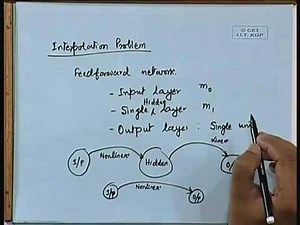 © CET
I.I.T. KGP
Interpolation Problem
Feedforward network.
- Input layer m0
Hidden
- Single layer m1
- Output layer : Single
Nonlinear
Linear
I/P
Hidden
Nonlinear
I/P
O/P